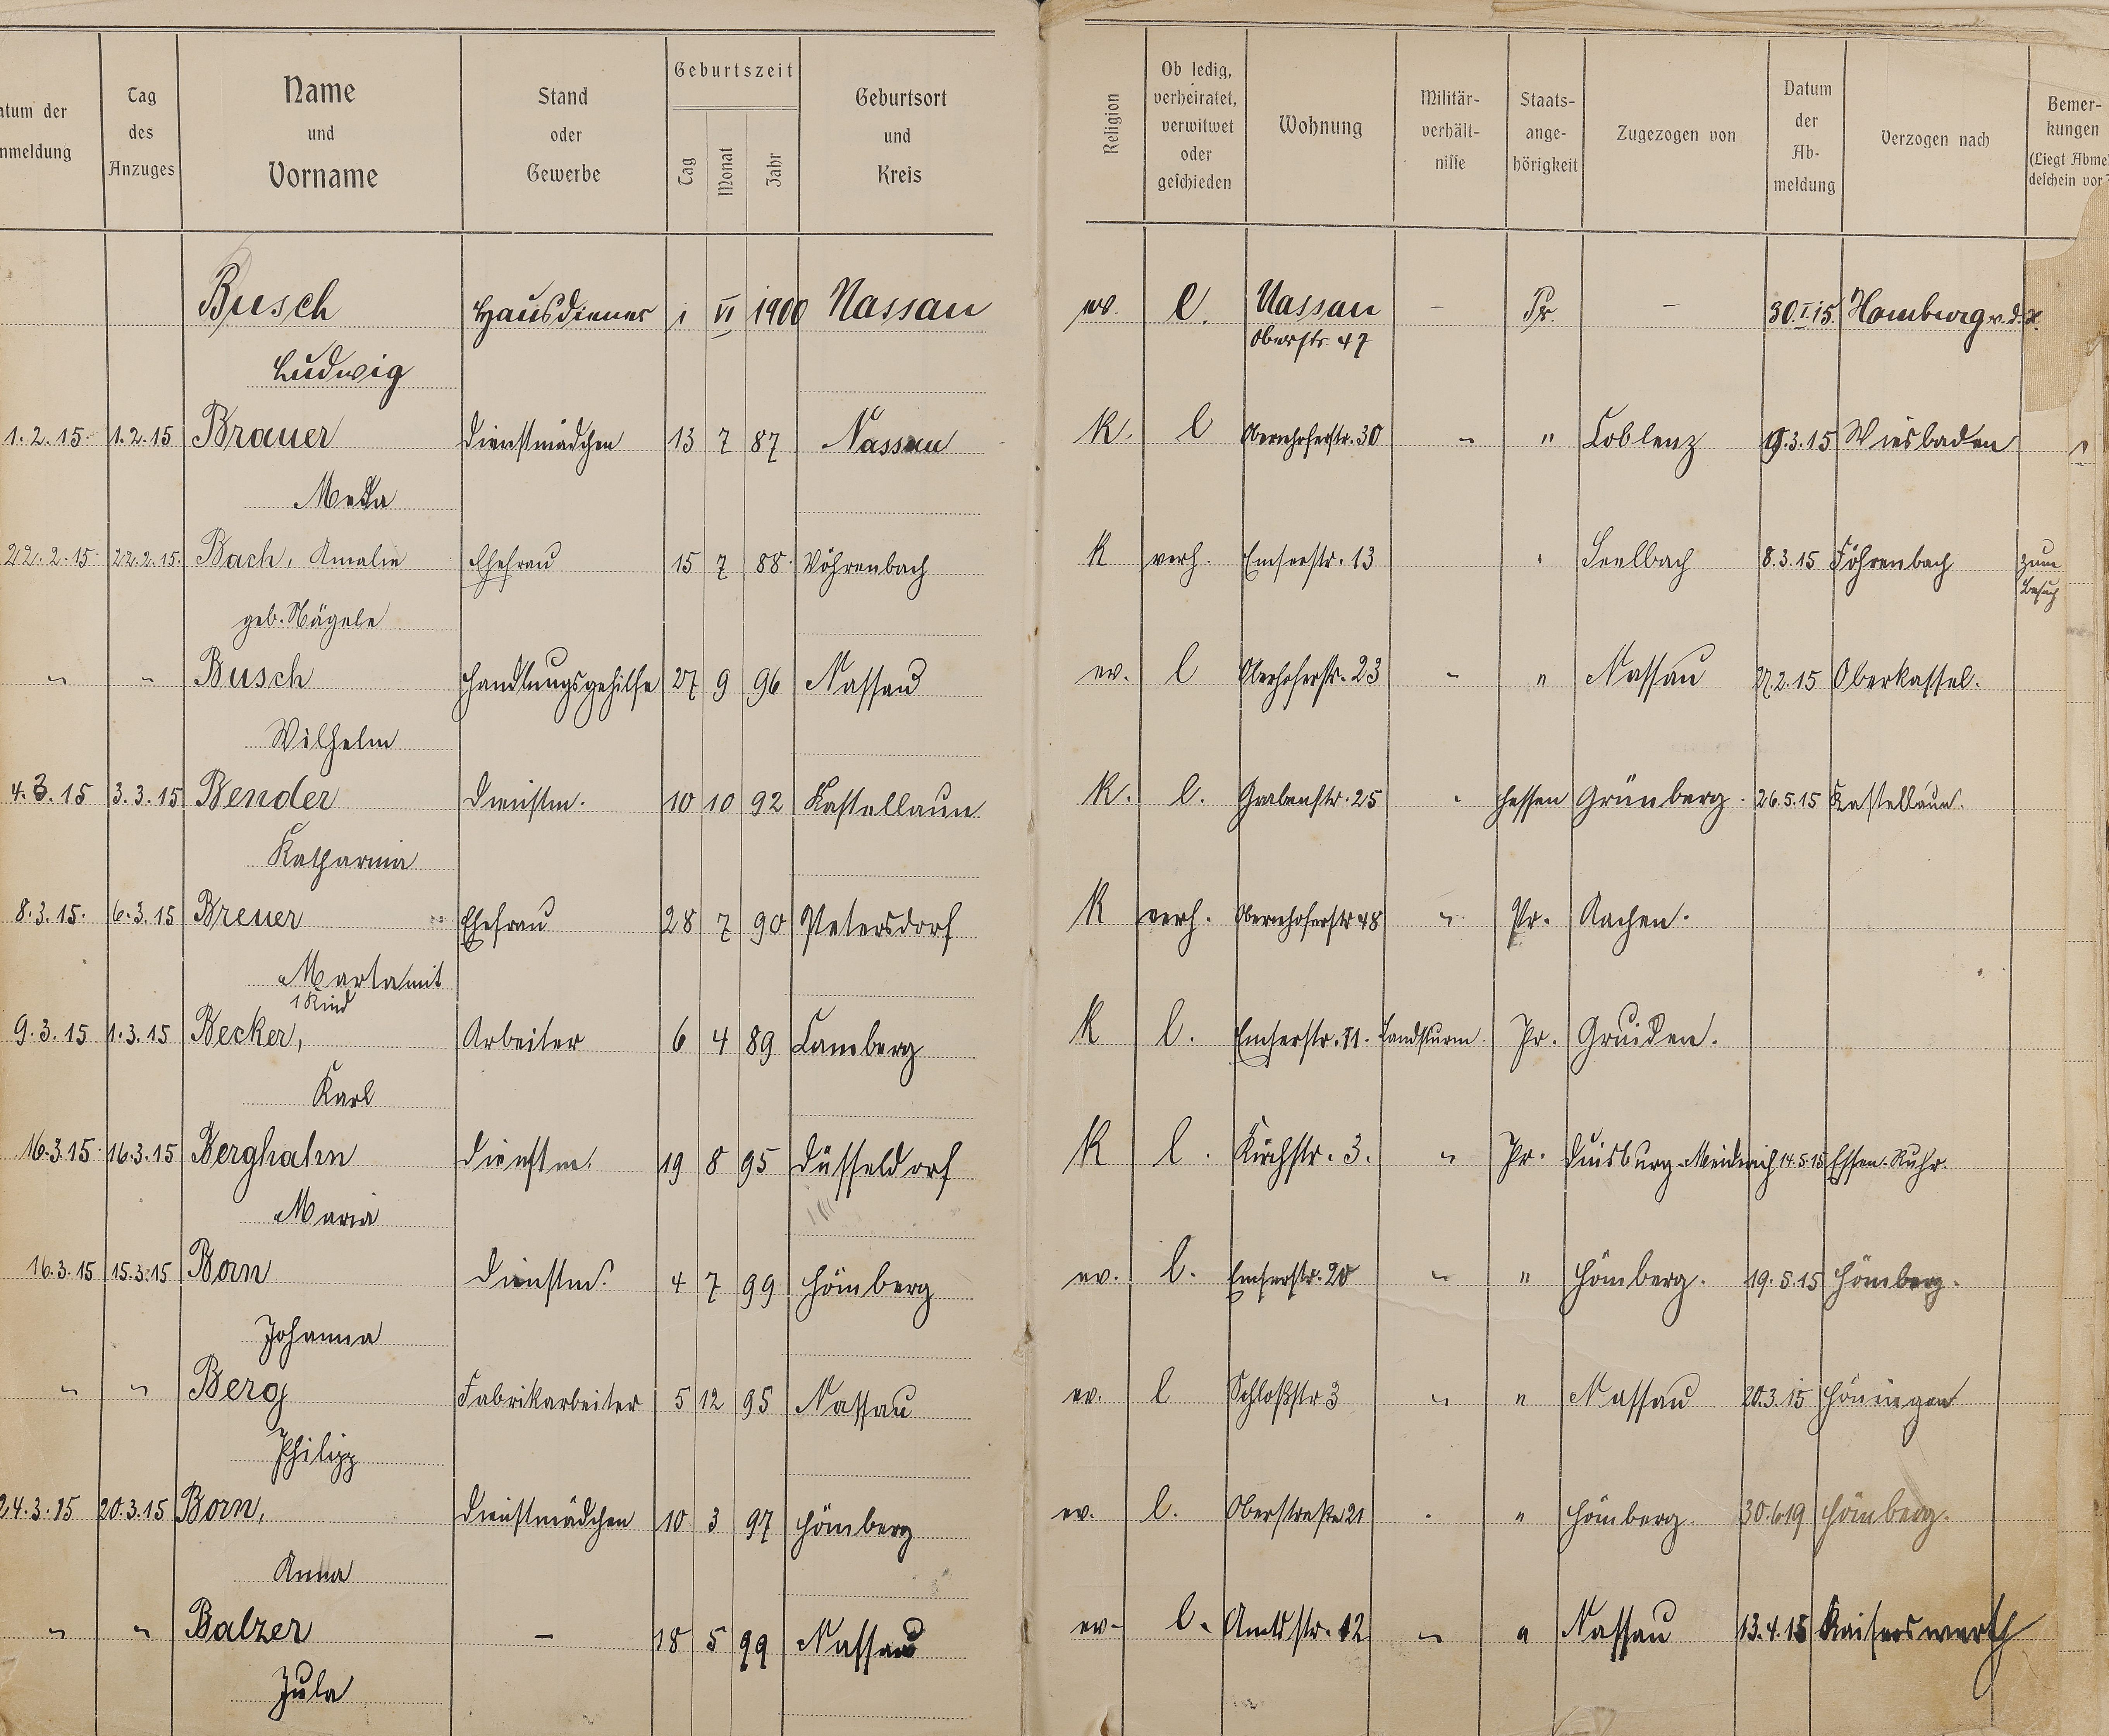 atum der
nmeldung
Tag
des
Anzuges
Name
und
Vorname
Stand
oder
Gewerbe
Geburtszeit
Tag
Monat
Jahr
Geburtsort
und
Kreis
Religion
Ob ledig,
verheiratet,
verwitwet
oder
geschieden
Wohnung
Militär-
verhält-
nisse
Staats-
ange-
hörigkeit
Zugezogen von
Datum
der
Ab-
meldung
Verzogen nach
Bemer-
kungen
(Liegt Abme
deschein vor?
Busch Hausdiener 1 VI 1900 Nassau ev. l. Nassau – Pr. – 30.I.15. Homburg v.d.H.
Oberstr. 47
Ludwig
1.2.15. 1.2.15 Brauer Dienstmädchen 13 7 87 Nassau K. l Obernhoferstr. 30 " " Coblenz 9.3.15 Wiesbaden
Meta
22.2.15. 22.2.15. Bach, Amalie Ehefrau 15 7 88 Vöhrenbach K verh. Emserstr. 13 " Seelbach 8.3.15 Föhrenbach zum
Besuch
geb. Nägele
" " Busch Handlungsgehilfe 27 9 96 Nassau ev. l Oberhoferstr. 23 " " Nassau 27.2.15 Oberkassel.
Wilhelm
4.3.15 3.3.15 Bender Dienstm. 10 10 92 Kastellaun K. l. Grabenstr. 25 " Hessen Grünberg. 26.5.15 Kastellaun.
Katharina
8.3.15. 6.3.15 Breuer Ehefrau 28 7 90 Petersdorf K verh. Obernhoferstr 48 " Pr. Aachen.
Marta mit
1 Kind
9.3.15 1.3.15 Becker, Arbeiter 6 4 89 Camberg K l. Emserstr. 11. Landsturm Pr. Gruiden.
Karl
16.3.15. 16.3.15 Berghahn Dienstm. 19 8 95 Düsseldorf K l. Kirchstr. 3. " Pr. Duisburg-Meiderich 14.5.15 Essen-Ruhr.
Maria
16.3.15 15.3.15 Born Dienstm. 4 7 99 Hömberg ev. l. Emserstr. 20 " " Hömberg. 19.5.15 Hömberg.
Johanna
" " Berg Fabrikarbeiter 5 12 95 Nassau ev. l Schloßstr 3 " " Nassau 20.3.15 Hönningen
Philipp
24.3.15 20.3.15 Born, Dienstmädchen 10 3 97 Hömberg ev. l. Oberstraße 21 " " Hömberg 30.6.19 Hömberg.
Anna
" " Balzer – 18 5 99 Nassau ev. l. Amtsstr. 12 " " Nassau 13.4.15 Kaiserswerth
Jula